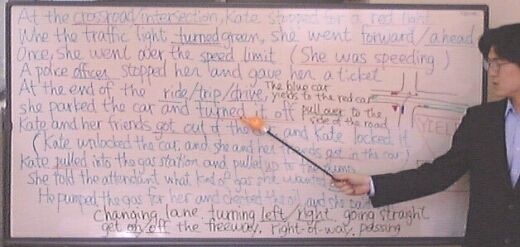 At the crossroad/intersection, Kate stopped for a red light.
Whe the traffic light turned green, she went forward/ahead
Once, She went over the speed limit (She was speeding)
A police officer stopped her and gave her a ticket
At the end of the ride/trip/drive,
The blue car
yields to the red car
she parked the car and turned it off
pull over to the
side of the road
YIELD
Kate and her friends got out of the and Kate locked it
(Kate unlocked the car, and she and her friends got in the car)
Kate pulled into the gas station and pulled up to the
she told the attendant what kind of gas she wanted
He pumped the gas for her and checked the oil, and she
Changing lane, turning left/right, going straight
get on/off the freeway, right-of-way, passing